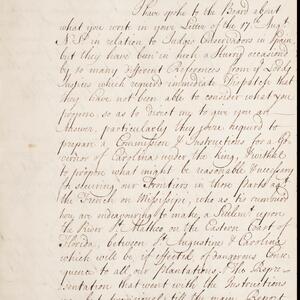 I have spoke to the Board about
what you write in your Letter of the 17 Augt
N.S. in relation to Judges Conservadors in Spain
but they have been in such a Hurry occasioned
by so many different References from ye Lords
Justices which required immediate Dispatch that
they have not been able to consider what you
propose so as to direct me to give you an
Answer, particularly they were requird to
prepare a Commission & Instructions for a Go
vernor of Carolina under the King, & withal
to propose what might be reasonable & necessary
for securing our Frontiers in those parts agt
the French on Missisipi, who as its rumoured
now are endeavouring to make a Settlemt upon
the River St Mattheo on the Eastern Coast of
Florida, between St Augustine & Carolina
which will be if effected of dangerous Conse
quence to all our Plantations. The Repre
sentation that went with the Instructions